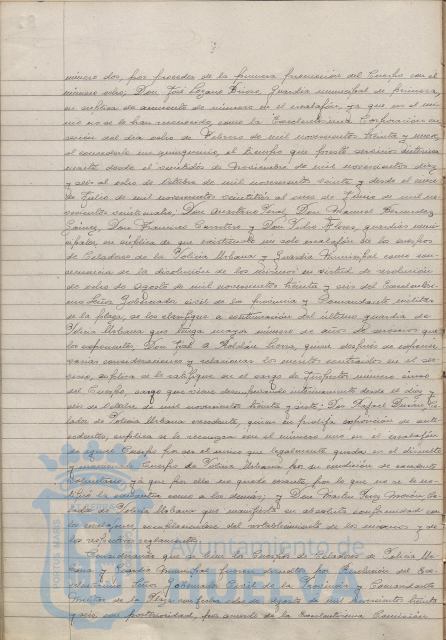 número dos, por proceder de la primera promoción del Cuerpo con el
número ocho; Don José Lozano Rivero, Guardia municipal de primera,
en súplica de aumento de número en el escalafón, ya que en el
no se le han reconocido, como la Excelentísima Corporación en
sesión del día ocho de Febrero de mil novecientos treinta y nueve,
al concederle un quinquenio, el tiempo que prestó servicios interina
mente desde el veintidós de Noviembre de mil novecientos diez
y seis al ocho de Octubre de mil novecientos veinte y desde el once
de Julio de mil novecientos veintitrés al once de Junio de mil no
vecientos veinticuatro; Don Don Manuel Bermúdez
Gómez, Don Francisco Carretero y Don Pedro Flores, guardias muni
cipales, en súplica de que existiendo un solo escalafón de los cuerpos
de Celadores de la Policía Urbana y Guardia Municipal como con
secuencia de la disolución de los mismos en virtud de resolución
de ocho de Agosto de mil novecientos treinta y seis del Excelentísi
mo Señor Gobernador civil de la provincia y Comandante militar
de la plaza, se les clasifique a continuación del último guardia de
Policía Urbana que tenga mayor número de años de servicios que
los exponentes; Don José A. Roldán quien después de exponer
varias consideraciones y relacionar los méritos contraídos en el ser
vicio, suplica se le ratifique en el cargo de Subjefe número cinco
del Cuerpo, cargo que viene desempeñando interinamente desde el diez y
seis de Octubre de mil novecientos treinta y siete; Don Rafael
lador de Policía Urbana excedente, quien en prolija exposición de ante
cedentes, suplica se le reconozca con el número uno en el escalafón
de aquel Cuerpo por ser el único que legalmente queda en el disuelto
y Cuerpo de Policía Urbana por su condición de excedente
voluntario, ya que por ello no quedó cesante por lo que no se le no
tificó la cesantía como a los demás; y Don Martín Pérez Ce
lador de Policía Urbana que manifiesta su absoluta conformidad con
los escalafones, del restablecimiento de los mismos y de
los respectivos reglamentos.
Considerando que si bien los Cuerpos de Celadores de Policía Ur
bana y Guardia Municipal fueron disueltos por Resolución del Ex
celentísimo Señor Gobernador Civil de la Provincia y Comandante
Militar de la Plaza con fecha ocho de Agosto de mil novecientos treinta
y seis con posterioridad, por acuerdo de la Excelentísima Comisión
Ayuntamiento de
HUELVA
PORTUS MARIS